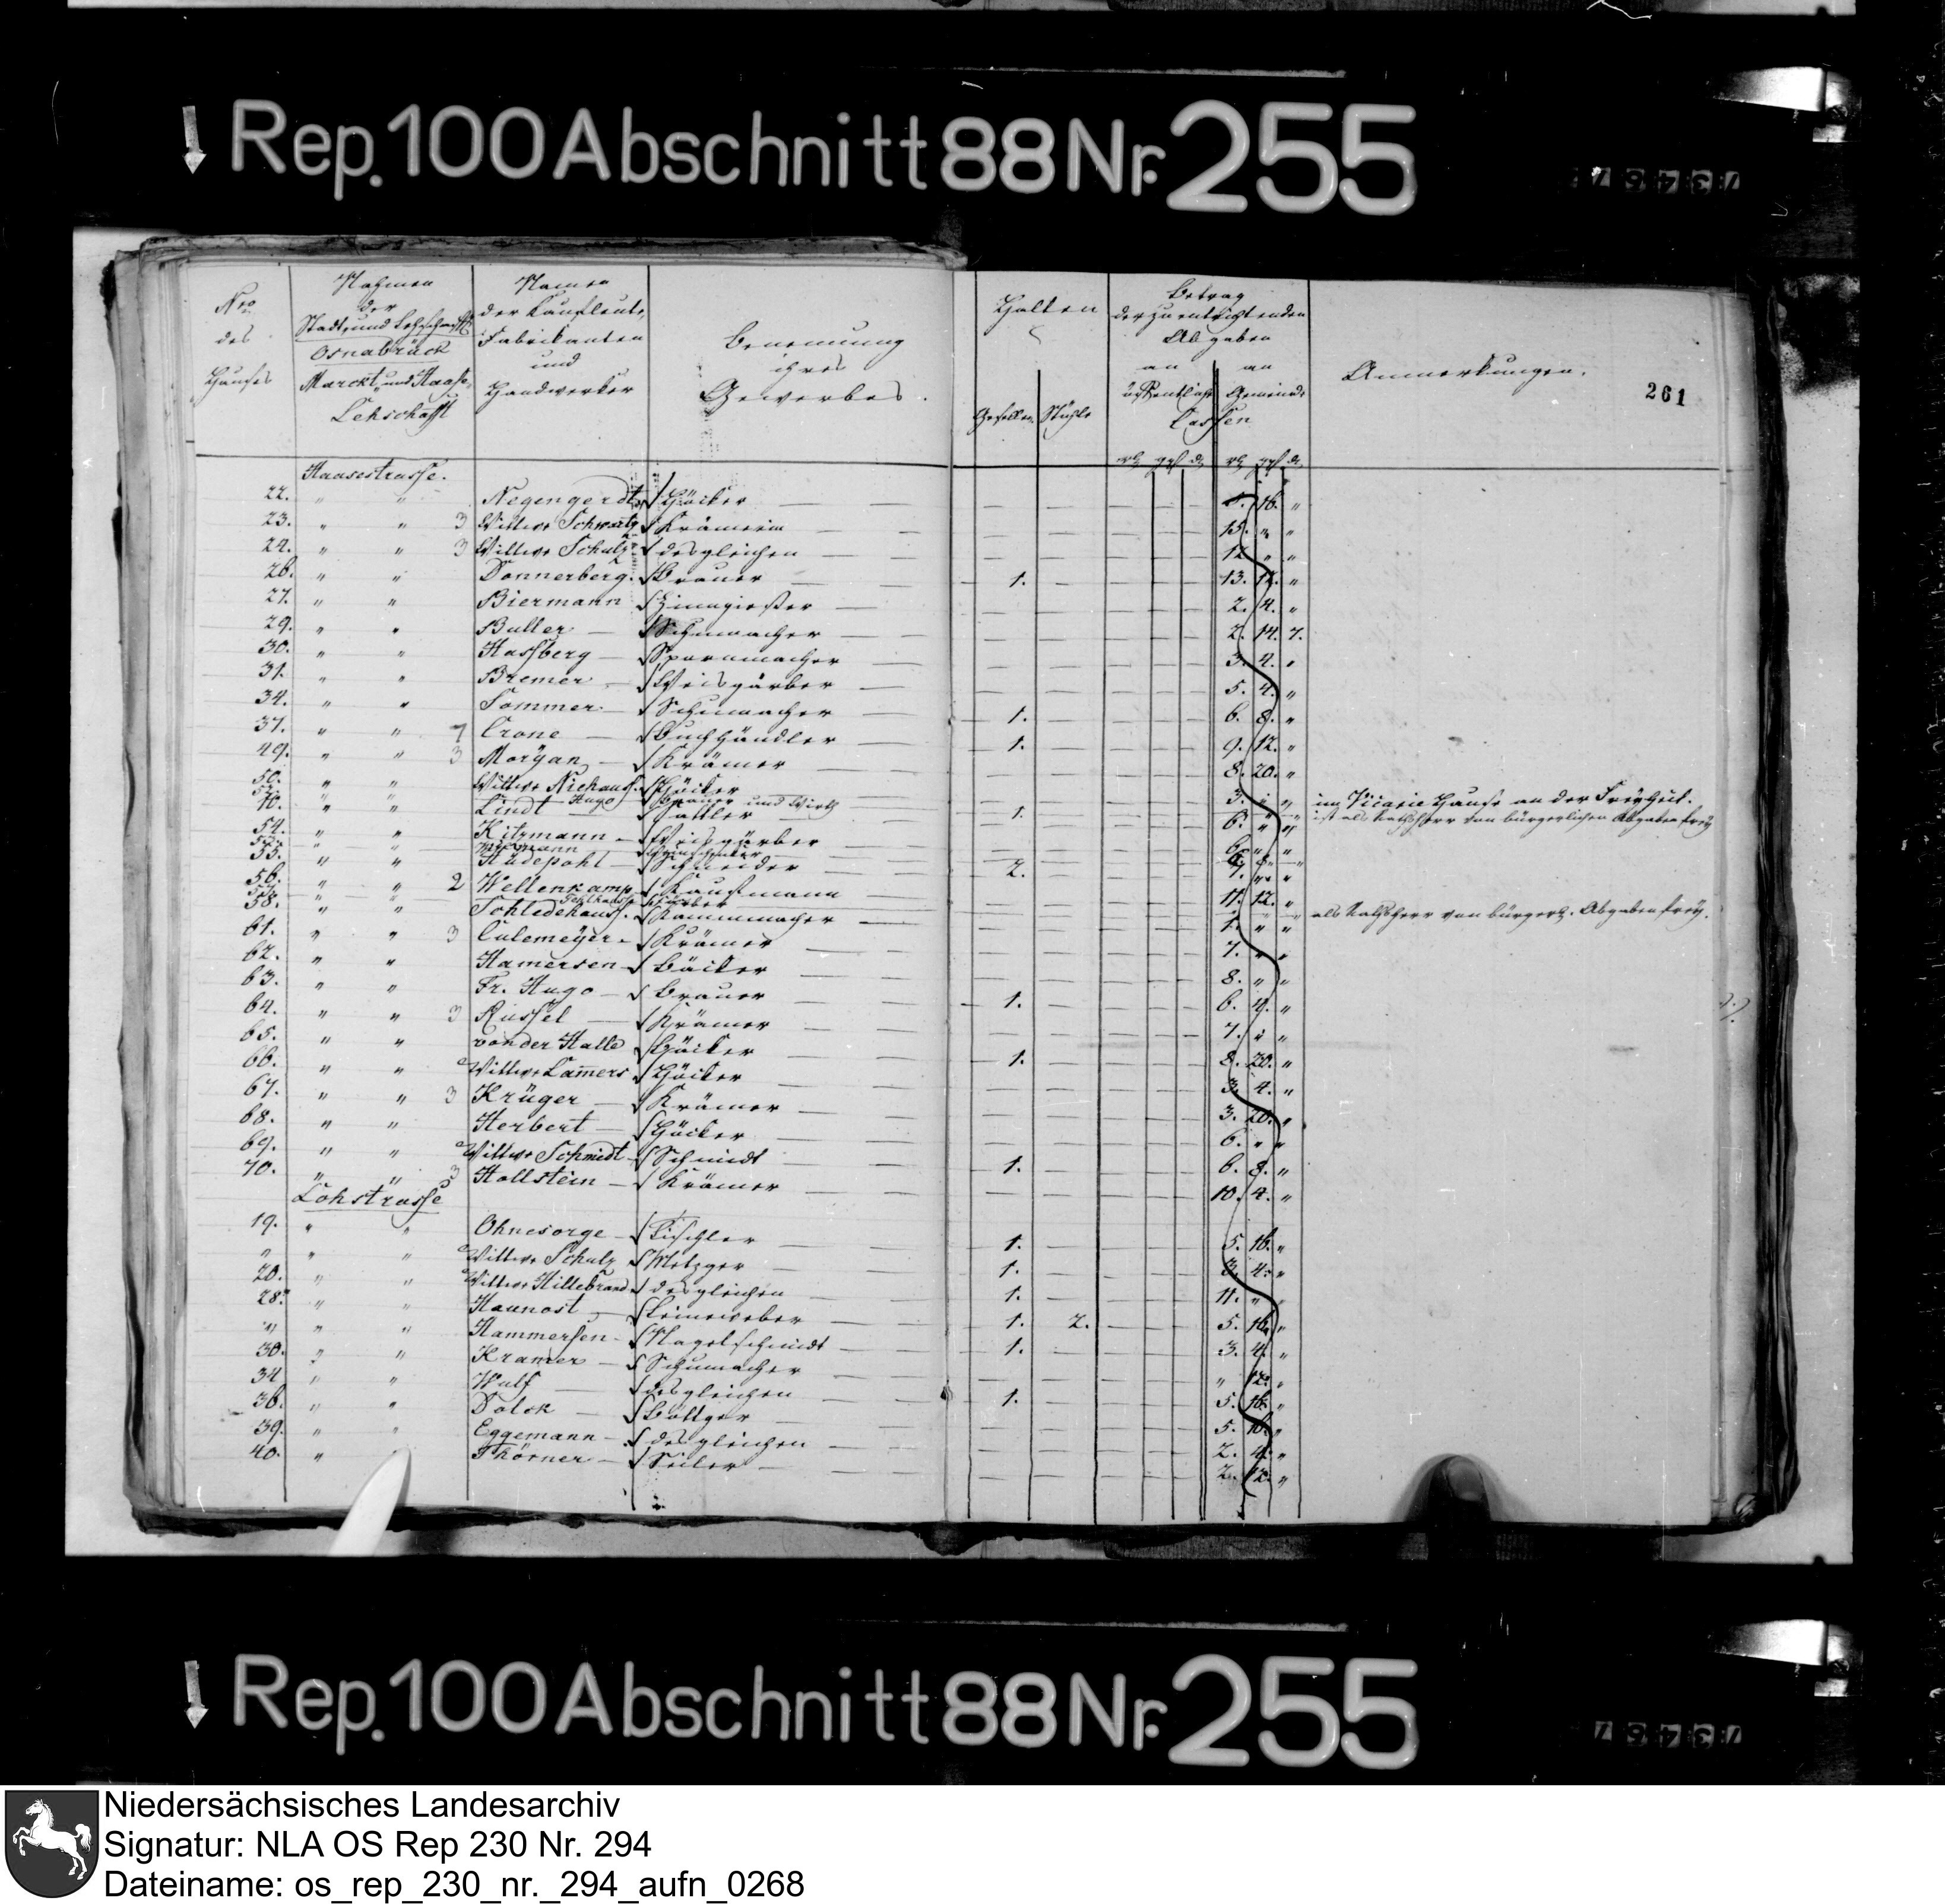 Rep. 100 Abschnitt 88 Nr. 255
261
Nro des Hauses
Nahmen der Stadt, und Lehschafft Osnabrück Marckt, und Haase, Lehschafft
Namen der Kaufleute, Fabrikanten und Handwerker
Benennung ihres Gewerbes.
Halten
Gesellen Stühle
Betrag der zu entrichtenden Abgaben
an öffentliche an Gemeinde Cassen
Anmerkungen.
Haasestrasse.
22. " " Negengerdt Höcker 16. "
23. " " 3 Wittwe Schwartz Krämerin 15. " "
24. " " 3 Wittwe Schulz desgleichen 12 " "
26. " " Donnerberg. Brauer 1. 13. 12. "
27. " " Biermann Zinngießer 2. 4. "
29. " " Buller Schumacher 2. 14. 7.
30. " " Hassberg Spornmacher 3. 4. "
31. " " Bremer Weisgärber 5. 4. "
34. " " Sommer Schumacher 1. 6. 8. "
37. " " 7 Crone Buchhändler 1. 9. 12. "
49. " " 3 Moryan Krämer 8. 20. "
50. " " Wittwe Niehaus. Höcker 3. " " im Vicarie Hause an der Freyheit.
" " Hugo Brauer und Wirth ist als Rathsherr von bürgerlichen Abgaben frey
" " Lindt Sattler 1. 6. " "
54. " " Kitzmann Weisgärber 6. " "
55. " " Hüdepohl Schneider 2. 7. " "
56. " " 2 Wellenkamp Kaufmann 11. 12. "
57. " " als Rathsherr von bürgerl. Abgaben frey.
58. " " Schledehaus. Kammmacher 1. " "
61. " " 3 Culemeyer Krämer 7. " "
62. " " Hamersen Bäcker 8. " "
63. " " Fr. Hugo Brauer 1. 6. 4. "
64. " " 3 Russel Krämer 7. " "
65. " " von der Halle Bäcker 1. 8. 20. "
66. " " Wittwe Lamers Höcker 3. 4. "
67. " " 3 Krüger Krämer 3. 20. "
68. " " Herbert Höcker 6. " "
69. " " Wittwe Schmidt Schmidt 1. 6. 8. "
70. " " 3 Hollstein Krämer 10. 4. "
Lohstrasse
19. " " Ohnesorge Tischler 1. 5. 16. "
" " " Wittwe Schulz Metzger 1. 3. 4. "
20. " " Wittwe Hillebrand desgleichen 1. 11. " "
28. " " Haunost Leineweber 1. 2. 5. 16. "
" " " Hammersen Nagelschmidt 1. 3. 4. "
30. " " Kramer Schumacher " 12. "
34 " " Wulf desgleichen 1. 5. 16. "
36. " " Dolck Böttger 5. 16. "
39. " " Eggemann desgleichen 2. 4. "
40. " Thörner Seiler 2. 12. "
Rep. 100 Abschnitt 88 Nr. 255
Niedersächsisches Landesarchiv
Signatur: NLA OS Rep 230 Nr. 294
Dateiname: os_rep_230_nr._294_aufn_0268